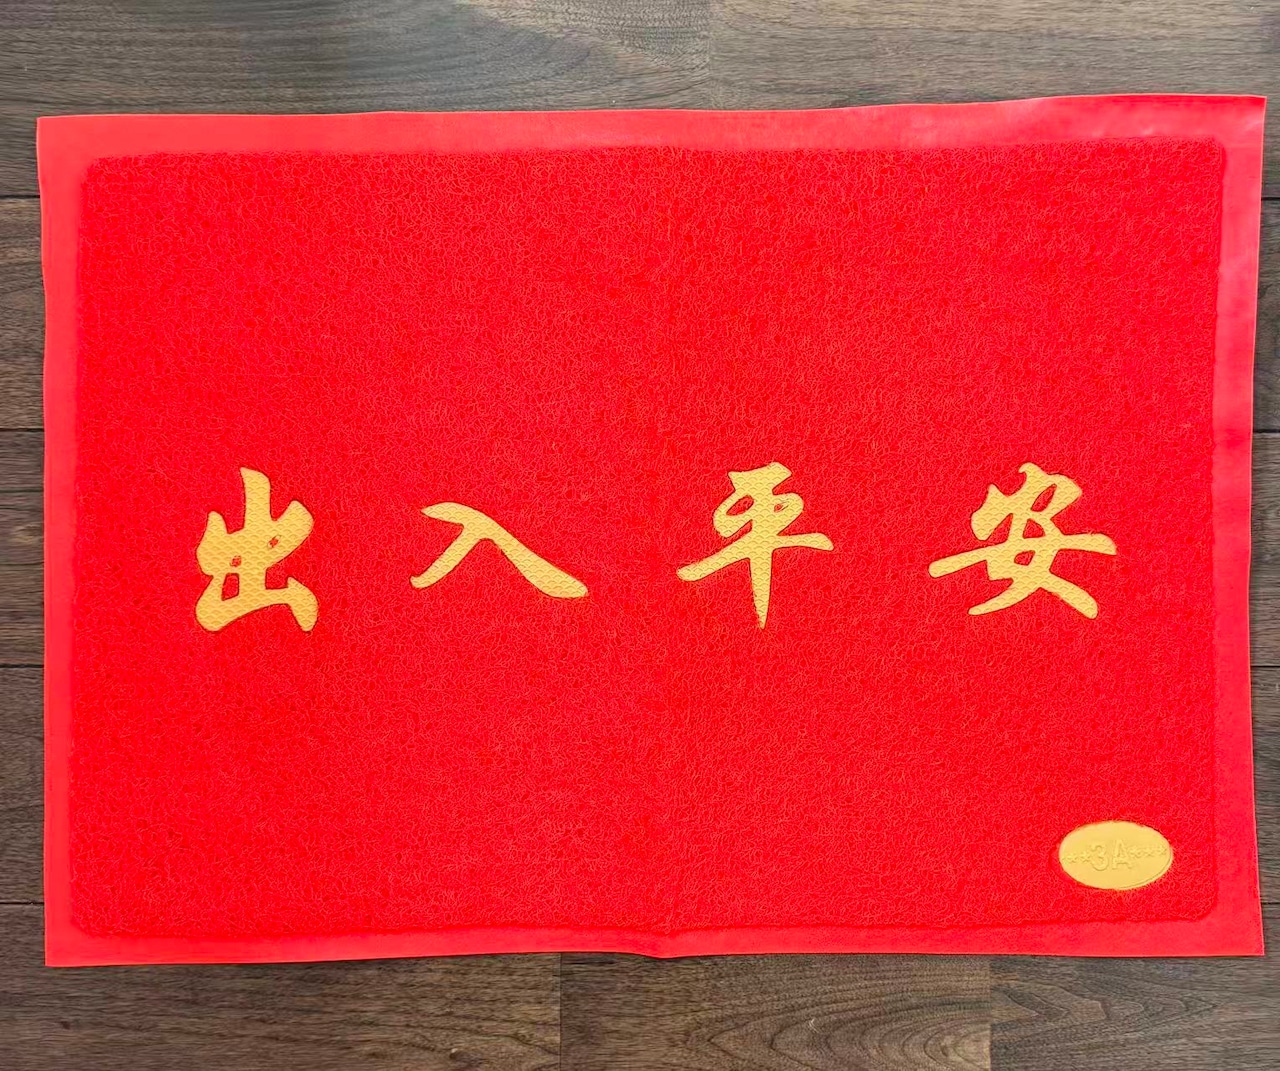 出入平安
***3A***